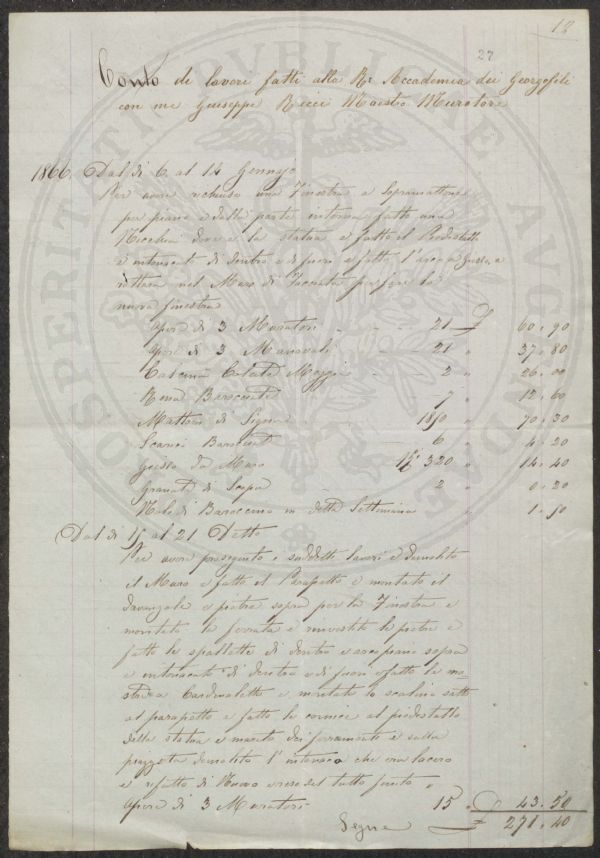 18
27
Conto di lavori fatti alla Rle Accademia dei Georgofili
con me Giuseppe Ricci Maestro Muratore
1866 Dal di 6 al 14 Gennajo
Per avere richiuso una Finestra a Sopramattone
per piano e dalla parte interna fatto una
Nicchia dove è la statua e fatto il Piedistallo
e intonacati di dentro e di fuori e fatto l'arco
rottura nel Muro di Facciata per fare la
nuova finestra
Opre di 3 Muratori 21 £ 60.90
Opre di 3 Manovali 21 " 37.80
Calcina Cotate Moggia 2 " 26.00
Rena Barocciate 7 " 12.60
Mattoni di Signa 1850 " 70.30
Scarici Barocciate 6 " 4.20
Gesso da Muro 320 " 14.40
Granate di Scopa 2 " 0.20
Nolo di Baroccino in detta Settimana " 1.50
Dal di 15 al 21 Detto
Per avere proseguito i suddetti lavori e demolito
il Muro e fatto il Parapetto e montato il
davanzale e pietre sopra per la Finestra e
montato la ferrata e rinvestito le pietre e
fatto le spallette di dentro e arcopiano sopra
e intonacati di dentro e di fuori e fatto la
e murato lo scalino sotto
al parapetto e fatto le cornice al piedistallo
della statua e murato dei ferramenti e sulla
piazzetta demolito l'intonaco che era lacero
e rifatto di Nuovo e reso del tutto finito
Opre di 3 Muratori 15 " 43.50
Segue £ 271.40
ACCADEMIA
PROSPERITATI PUBLICAE AUGENDAE